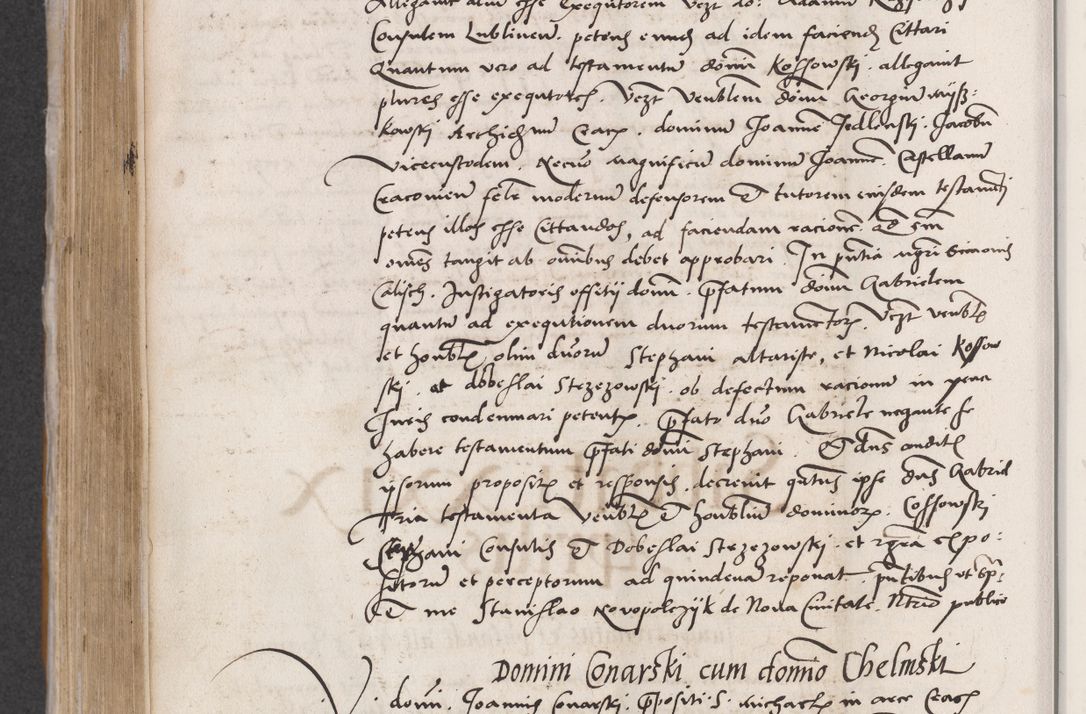 Allegavit eciam esse exequtorem vezt do: Adamum
Consulem Lublinen. petens eundem ad idem faciendum Cittari
Quantum vero ad testamentum domini Kossowski. allegavit
plures esse exequtores. Vezt Venblem dominum Georgium mijsz:
kowski Archidnum Crac. dominum Joannem Jedlenski. Jacobum
Vicecustodem. Necno magnificum dominum Joannem. Castellanum
Cracovien. felr modernum defensorem Et tutorem eiusdem testamti
petens illos esse Cittandos, ad faciendam racionem. Qd cum
omnes tangit ab omnibus debet approbari. In pntia ngri Simonis
Calisch. Instigatoris officij domini. Pfatum dominum Gabrielem
quantum ad exequtionem duorum testamentor. Vezt venblis
et honblis olim duoru Stephani altariste, et Nicolai Kossow
ski. et dobeslai Strzezowski. ob defectum racionum in pena
Jures condemnari petentis. Pfato dno Gabriele negante se
habere testamentum Pfati domini Stephani. Et dns auditis
ipsorum propositis et responsis. decrevit qutnus ipse dns Gabriel
tria testamenta venblis Et honblium dominor. Cossowski
Stephani Consulis Et Dobeslai Strzezowski. et rgra expo:
sitorum et perceptorum ad quindenam reponat. pntibus ut spr:
Et me Stanislao Novopolczijk de Nova Civitate. Ntrio publico
Domini Conarski cum domno Chelmski
domi. Joannis Conarski. Ppositi S. Michaelis in arce Crac